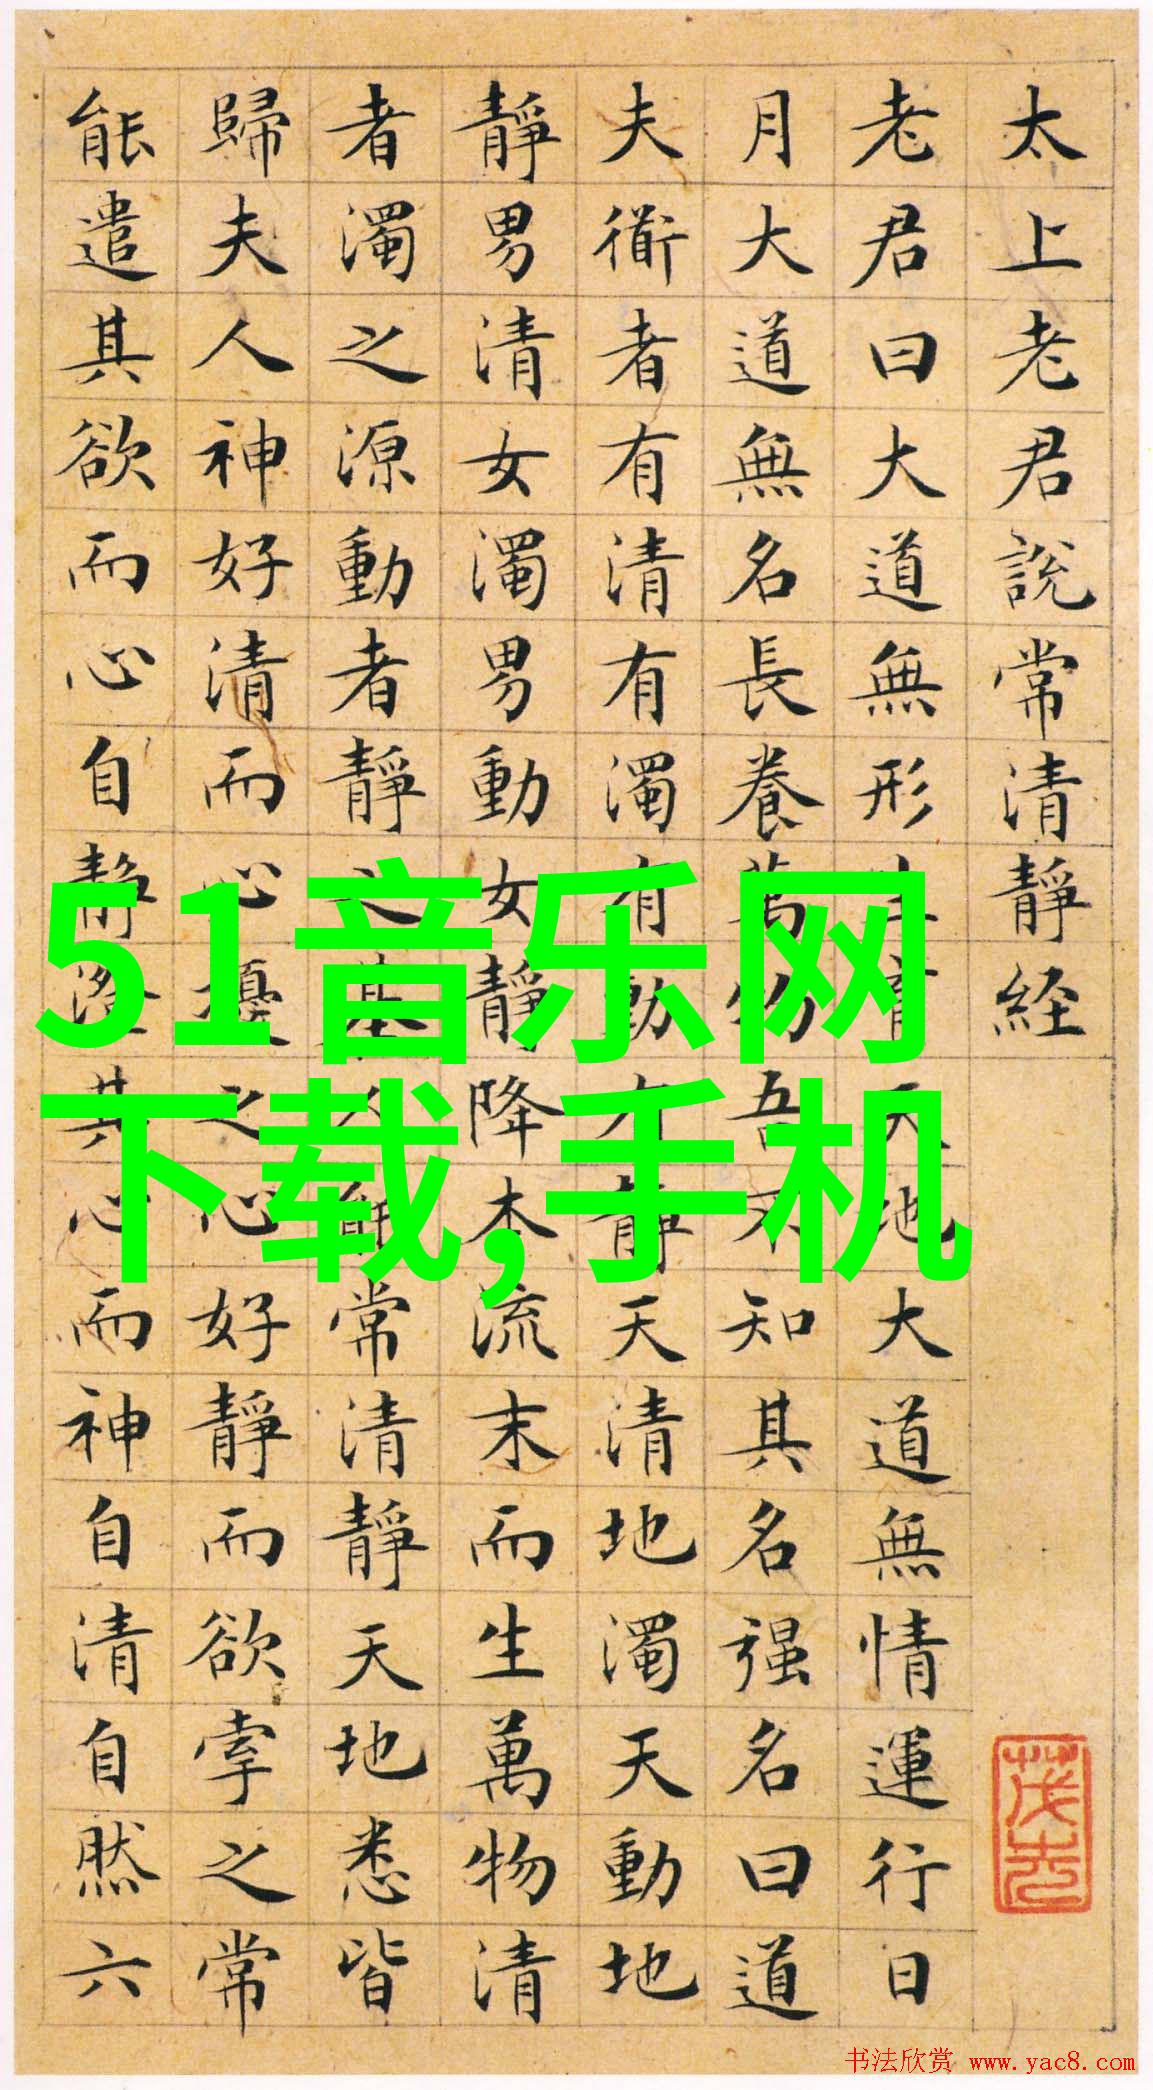 太上老君說常清靜経
老君曰大道無形生育天地大道無情運行日
月大道無名長養萬物吾不知其名强名曰道
夫衜者有清有濁有動有靜天清地濁天動地
靜男清女濁男動女靜降本流末而生萬物清
者濁之源動者靜之基人能常清靜天地悉皆
歸夫人神好清而心擾之心好靜而欲牽之常
能遣其欲而心自靜澄其心而神自清自然六
51音乐网
下载,手机
书法欣赏 www.yac8.com